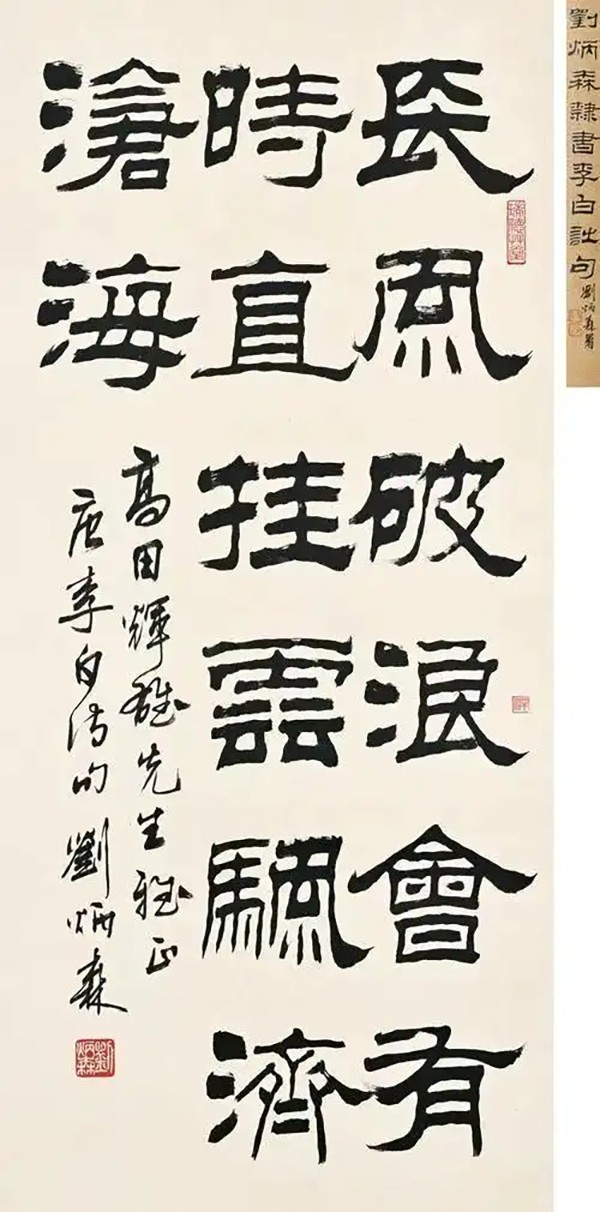 劉炳森隸書李白詩句 劉炳森署
長風破浪會有
時直挂雲颿濟
滄海
高田輝雄先生雅正
唐李白詩句 劉炳森
劉炳森